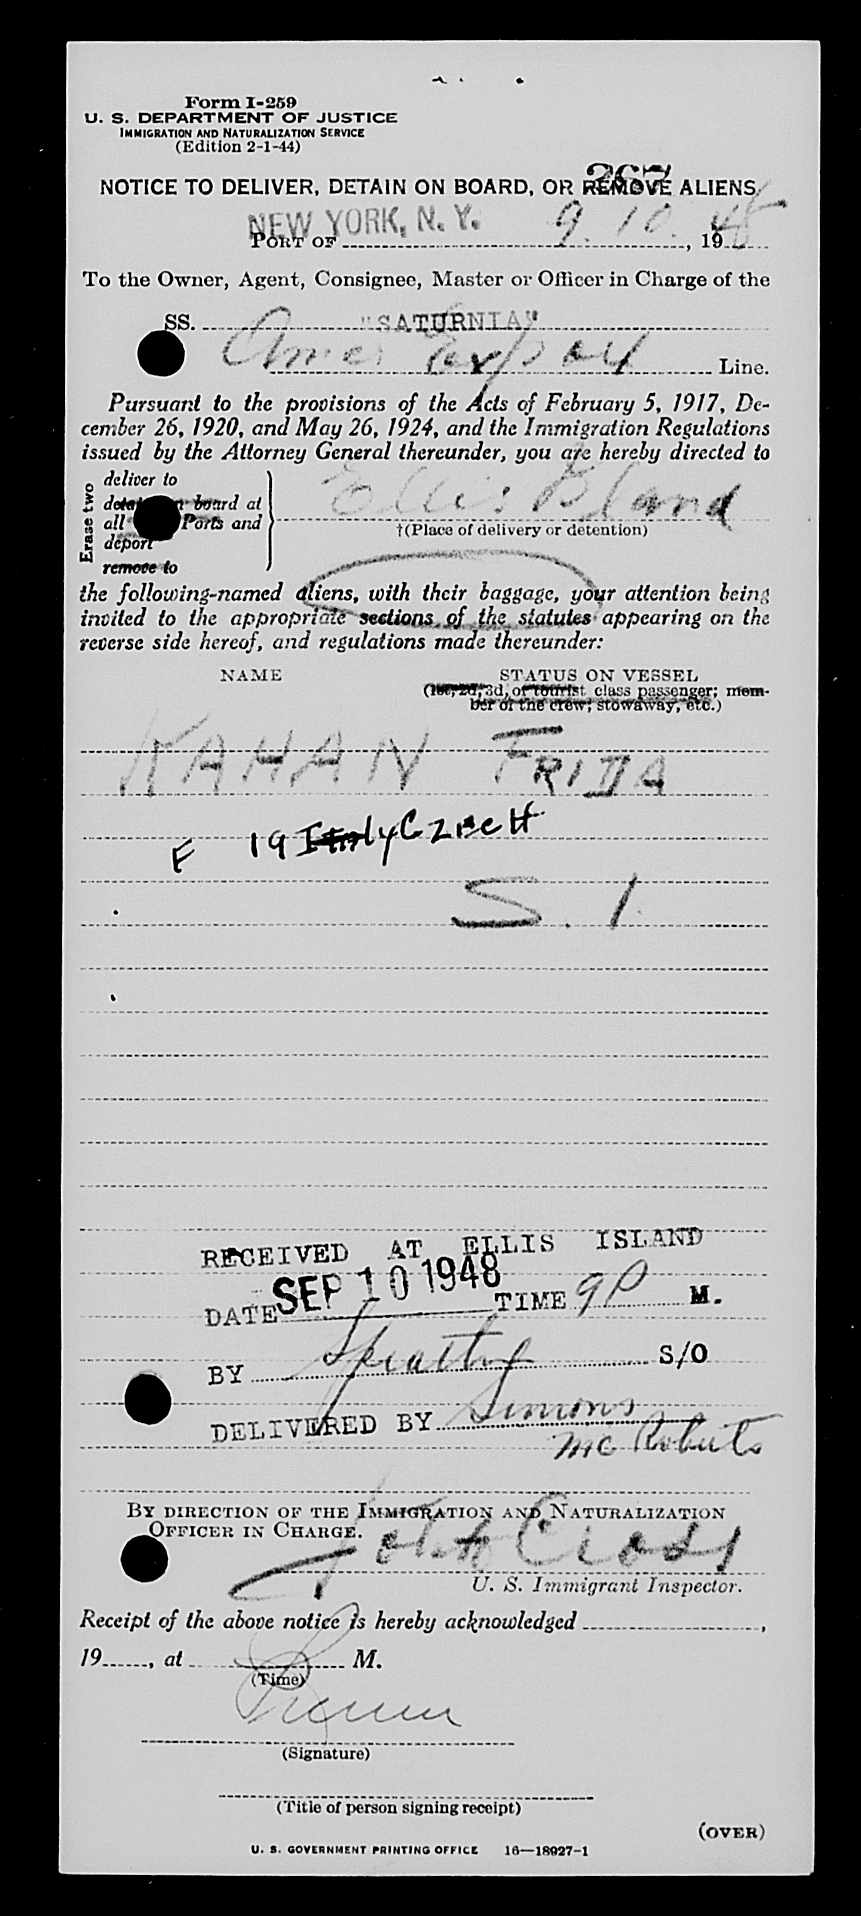 Form I-259
U. S. DEPARTMENT OF JUSTICE
IMMIGRATION AND NATURALIZATION SERVICE
(Edition 2-1-44)
267
NOTICE TO DELIVER, DETAIN ON BOARD, OR REMOVE ALIENS
NEW YORK, N. Y. 9. 10. 48
PORT OF , 19
To the Owner, Agent, Consignee, Master or Officer in Charge of the
SS. "SATURNIA"
Amer Export Line.
Pursuant to the provisions of the Acts of February 5, 1917, De-
cember 26, 1920, and May 26, 1924, and the Immigration Regulations
issued by the Attorney General thereunder, you are hereby directed to
Erase two
deliver to
detain on board at
all Ports and
deport
remove to
Ellis Island
†(Place of delivery or detention)
the following-named aliens, with their baggage, your attention being
invited to the appropriate sections of the statutes appearing on the
reverse side hereof, and regulations made thereunder:
NAME STATUS ON VESSEL
(1st, 2d, 3d, or tourist class passenger; mem-
ber of the crew; stowaway, etc.)
KAHAN FRIDA
F 19 Italy Czech
S. I.
RECEIVED AT ELLIS ISLAND
DATE SEP 10 1948 TIME 9P M.
BY S/O
DELIVERED BY Simons
Mc Roberts
BY DIRECTION OF THE IMMIGRATION AND NATURALIZATION
OFFICER IN CHARGE.
John Cross
U. S. Immigrant Inspector.
Receipt of the above notice is hereby acknowledged ,
19 , at M.
(Time)
(Signature)
(Title of person signing receipt)
(OVER)
U. S. GOVERNMENT PRINTING OFFICE 16—18027-1